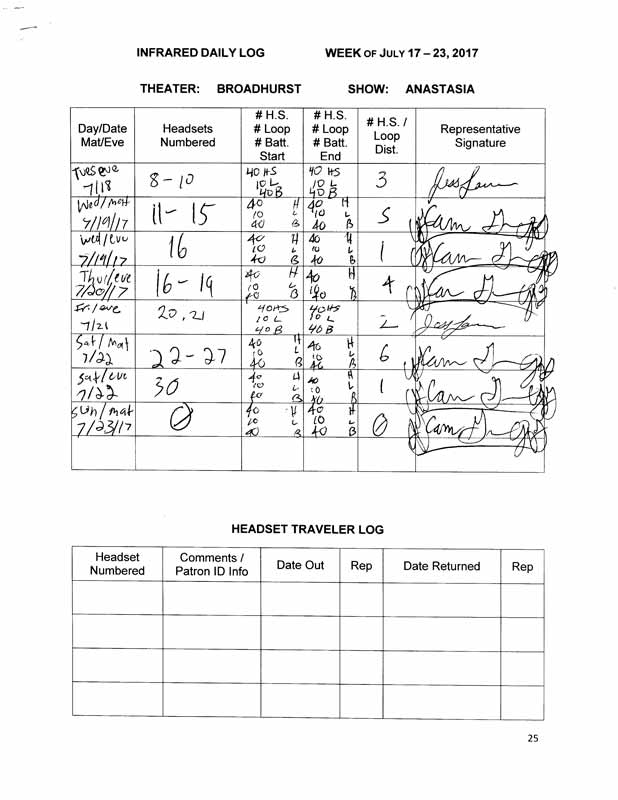 INFRARED DAILY LOG WEEK OF JULY 17 – 23, 2017
THEATER: BROADHURST SHOW: ANASTASIA
Day/Date Mat/Eve
Headsets Numbered
# H.S. # Loop # Batt. Start
# H.S. # Loop # Batt. End
# H.S. / Loop Dist.
Representative Signature
Tues eve 7/18 8-10 40 HS 10 L 40 B 40 HS 10 L 40 B 3
Wed/mat 7/19/17 11-15 40 H 10 L 40 B 40 H 10 L 40 B 5 Cam
Wed/eve 7/19/17 16 40 H 10 L 40 B 40 H 10 L 40 B 1 Cam
Thur/eve 7/20/17 16-19 40 H 10 L 40 B 40 H 10 L 40 B 4
Fri/eve 7/21 20,21 40HS 10 L 40 B 40HS 10 L 40 B 2
Sat/mat 7/22 22-27 40 H 10 L 40 B 40 H 10 L 40 B 6 Cam
Sat/eve 7/22 30 40 H 10 L 40 B 40 H 10 L 40 B 1 Cam
Sun/mat 7/23/17 0 40 H 10 L 40 B 40 H 10 L 40 B 0 Cam
HEADSET TRAVELER LOG
Headset Numbered
Comments / Patron ID Info
Date Out
Rep
Date Returned
Rep
25